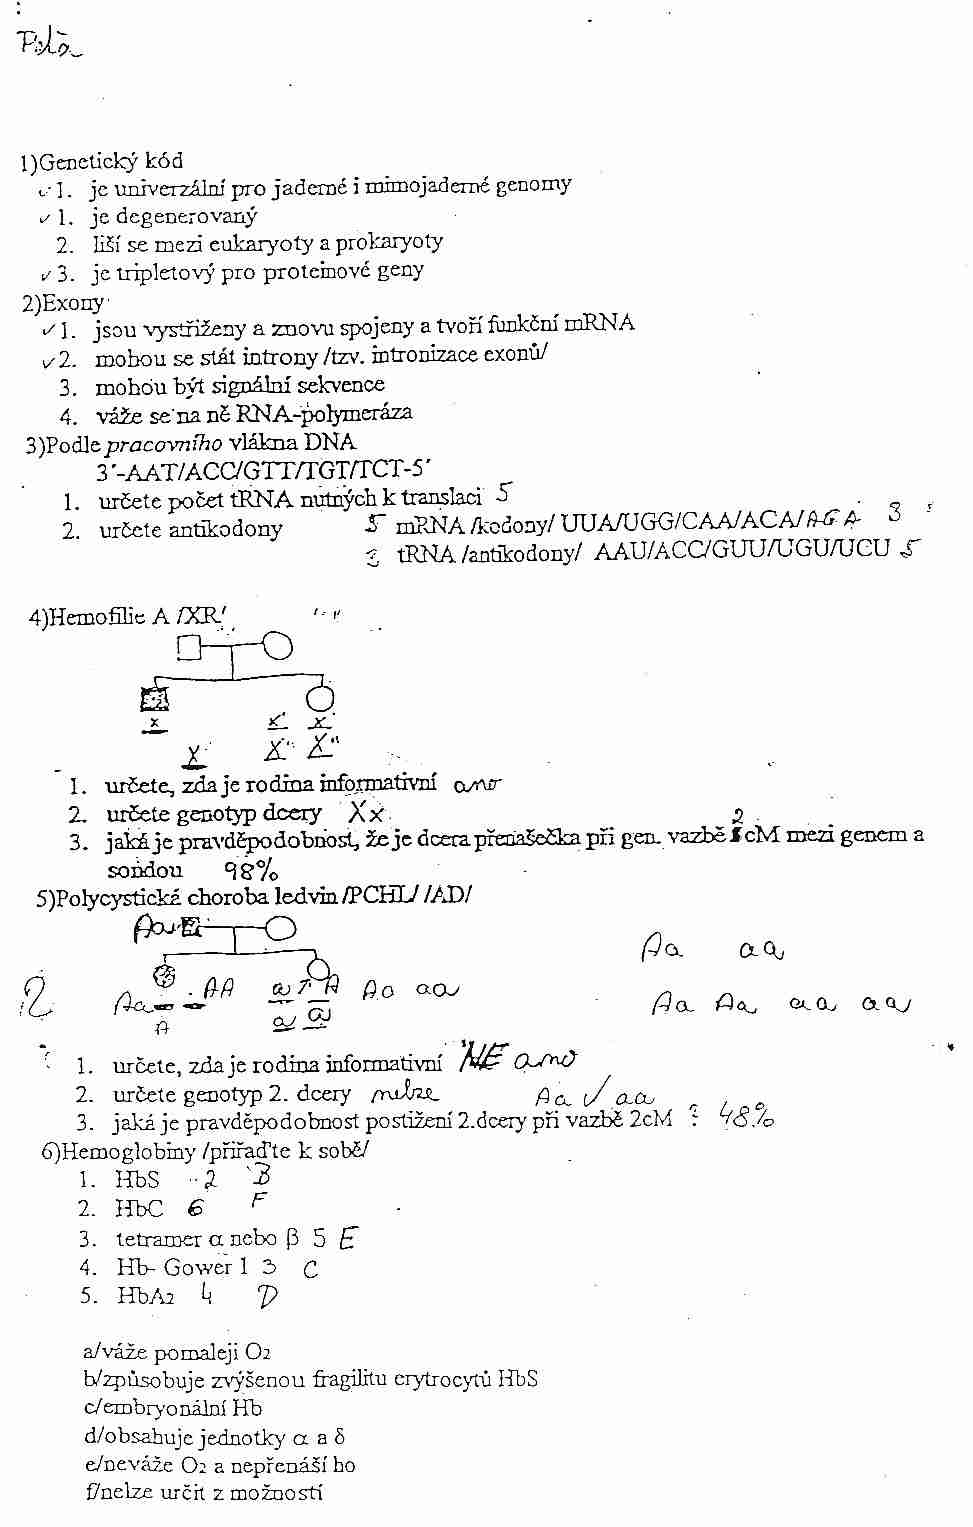 1)Genetický kód
✓1. je univerzální pro jaderné i mimojaderné genomy
✓1. je degenerovaný
2. liší se mezi eukaryoty a prokaryoty
✓3. je tripletový pro proteinové geny
2)Exony
✓1. jsou vystřiženy a znovu spojeny a tvoří funkční mRNA
✓2. mohou se stát introny /tzv. intronizace exonů/
3. mohou být signální sekvence
4. váže se na ně RNA-polymeráza
3)Podle pracovního vlákna DNA
3´-AAT/ACC/GTT/TGT/TCT-5´
1. určete počet tRNA nutných k translaci 5
2. určete antikodony 5 mRNA /kodony/ UUA/UGG/CAA/ACA/AGA 3
3 tRNA /antikodony/ AAU/ACC/GUU/UGU/UCU 5
4)Hemofilie A /XR/
x x x
X X X
1. určete, zda je rodina informativní ano
2. určete genotyp dcery Xx
3. jaká je pravděpodobnost, že je dcera přenašečka při gen. vazbě 2 cM mezi genem a
sondou 98%
5)Polycystická choroba ledvin /PCHL/ /AD/
Aa
Aa aa
Aa AA a A Aa aa
Aa Aa aa aa
A a a
1. určete, zda je rodina informativní NE ano
2. určete genotyp 2. dcery nelze Aa / aa
3. jaká je pravděpodobnost postižení 2.dcery při vazbě 2cM ? 48%
6)Hemoglobiny /přiřaďte k sobě/
1. HbS 2 B
2. HbC 6 F
3. tetramer α nebo β 5 E
4. Hb- Gower 1 3 C
5. HbA2 4 D
a/váže pomaleji O2
b/způsobuje zvýšenou fragilitu erytrocytů HbS
c/embryonální Hb
d/obsahuje jednotky α a δ
e/neváže O2 a nepřenáší ho
f/nelze určit z možností